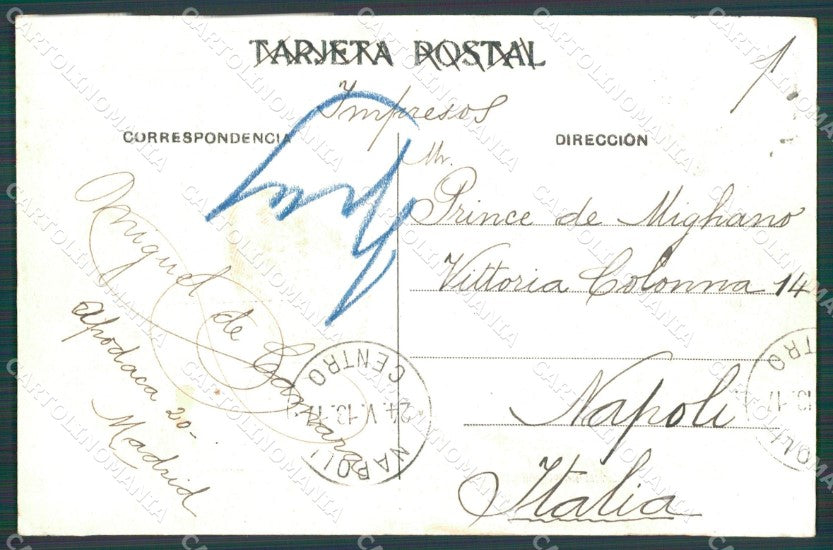 TARJETA POSTAL
Impresos
CORRESPONDENCIA
DIRECCIÓN
Mr.
Prince de Mighano
Vittoria Colonna 14
Napoli
Italia
Miguel de
Apodaca 20-
Madrid
NAPOLI CENTRO
24.V.13.17
CARTOLINOMANIA